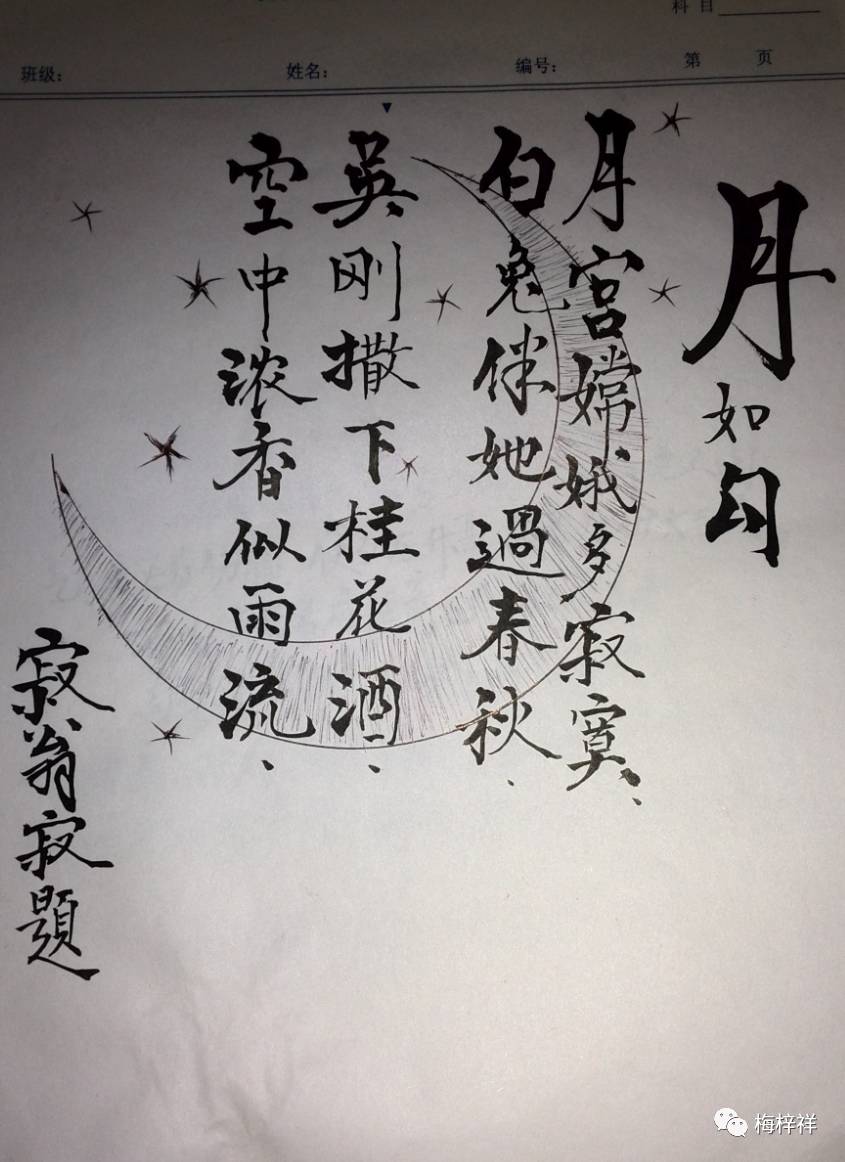 科目
班级： 姓名： 编号： 第 页
月如勾
月宫嫦娥多寂寞、
白兔伴她過春秋、
吳刚撒下桂花酒、
空中浓香似雨流、
寂翁寂題
梅梓祥